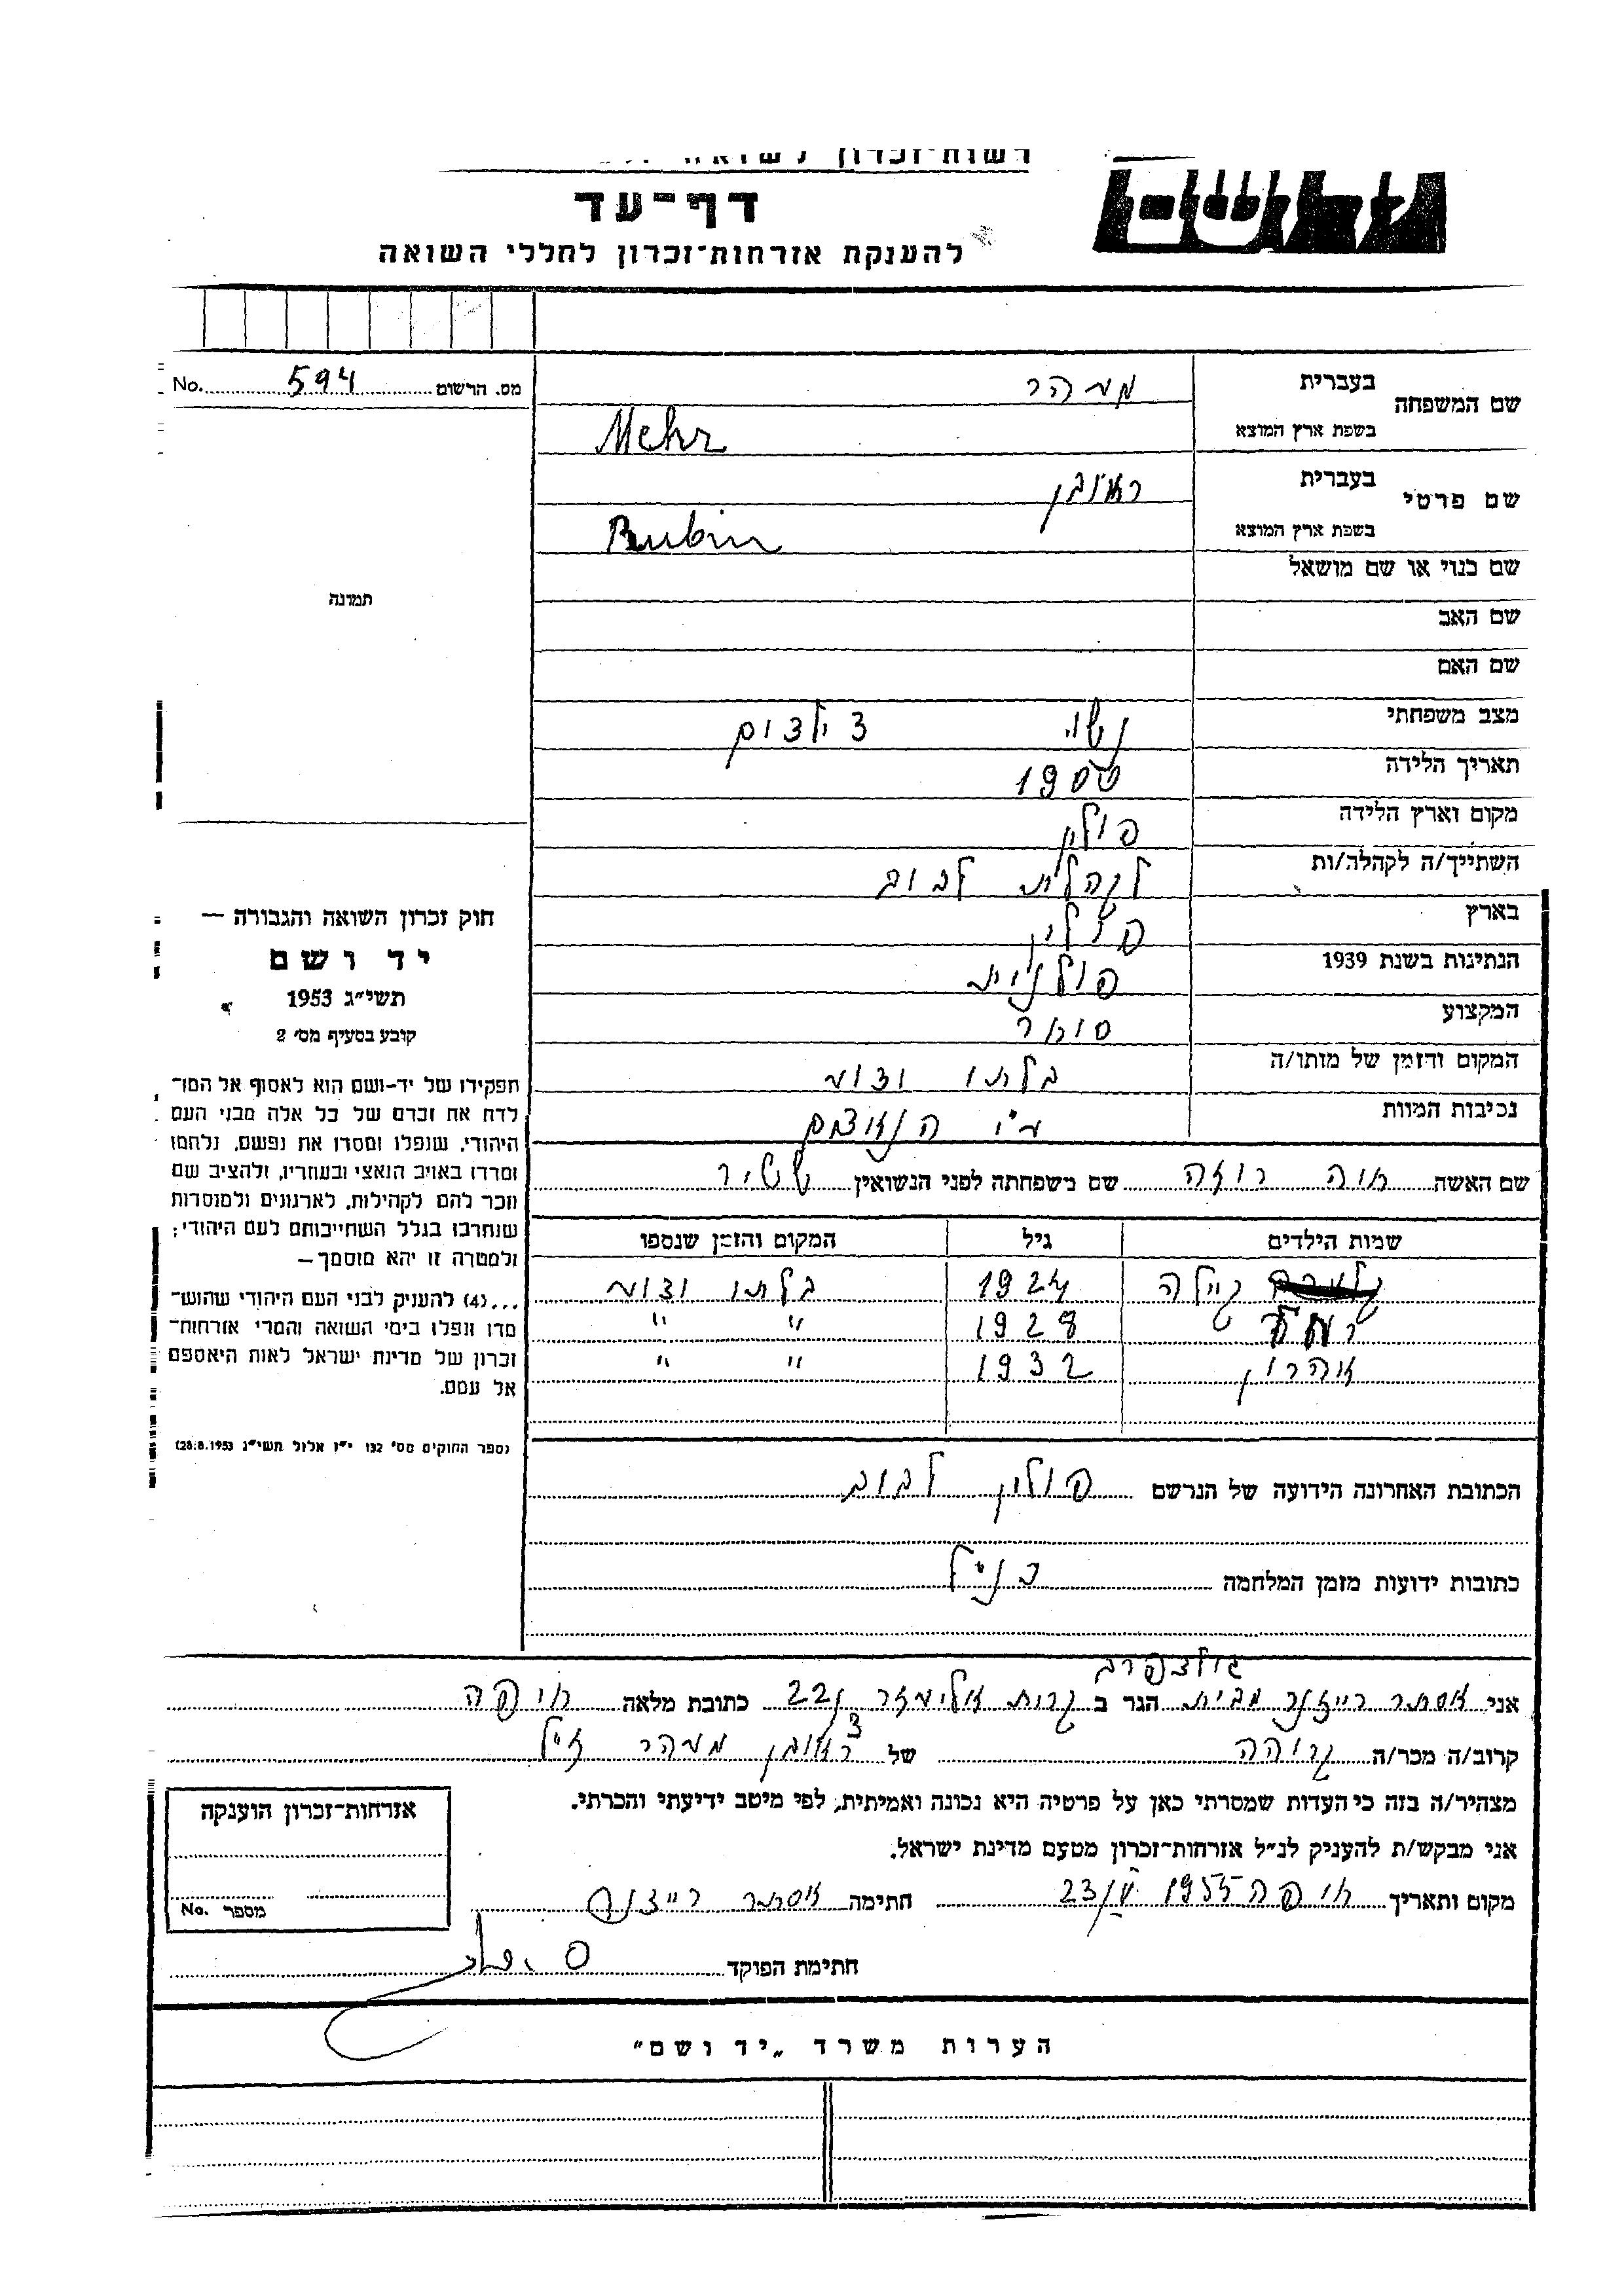 דף־עד
להענקת אזרחות־זכרון לחללי השואה
No. 594 מס. הרשום
שם המשפחה
בעברית
מהר
בשפת ארץ המוצא
Mehr
שם פרטי
בעברית
ראובן
בשפת ארץ המוצא
Rubin
שם כנוי או שם מושאל
שם האב
שם האם
מצב משפחתי נשוי 3 ילדים
תאריך הלידה 1900
מקום וארץ הלידה פולין
השתייך/ה לקהלה/ות לקהלת לבוב
בארץ פולין
הנתינות בשנת 1939 פולנית
המקצוע סוחר
המקום והזמן של מותו/ה בלתי ידוע
נסיבות המוות ע"י הנאצים
שם האשה חוה רוזה שם משפחתה לפני הנשואין
שמות הילדים גיל המקום והזמן שנספו
1924 בלתי ידוע
1928 " "
אהרון 1932 " "
הכתובת האחרונה הידועה של הנרשם פולין לבוב
כתובות ידועות מזמן המלחמה כנ"ל
תמונה
חוק זכרון השואה והגבורה —
יד ושם
תשי״ג 1953
קובע בסעיף מס׳ 2
תפקידו של יד-ושם הוא לאסוף אל המו־
לדת את זכרם של כל אלה מבני העם
היהודי, שנפלו ומסרו את נפשם, נלחמו
ומרדו באויב הנאצי ובעוזריו, ולהציב שם
וזכר להם לקהילות, לארגונים ולמוסדות
שנחרבו בגלל השתייכותם לעם היהודי;
ולמטרה זו יהא מוסמך —
...(4) להעניק לבני העם היהודי שהוש־
מדו ונפלו בימי השואה והמרי אזרחות־
זכרון של מדינת ישראל לאות היאספם
אל עמם.
(ספר החוקים מס׳ 132 י״ז אלול תשי״ג 28.8.1953)
גולדפרב
אני אסתר רייזנר מבית הגר ב קרית אליעזר 22 כתובת מלאה חיפה
קרוב/ה מכר/ה קרובה של ראובן מהר ז"ל
מצהיר/ה בזה כי העדות שמסרתי כאן על פרטיה היא נכונה ואמיתית, לפי מיטב ידיעתי והכרתי.
אני מבקש/ת להעניק לנ״ל אזרחות־זכרון מטעם מדינת ישראל.
מקום ותאריך חיפה 1955 חתימה אסתר רייזנר
חתימת הפוקד
אזרחות־זכרון הוענקה
מספר No.
הערות משרד „יד ושם״